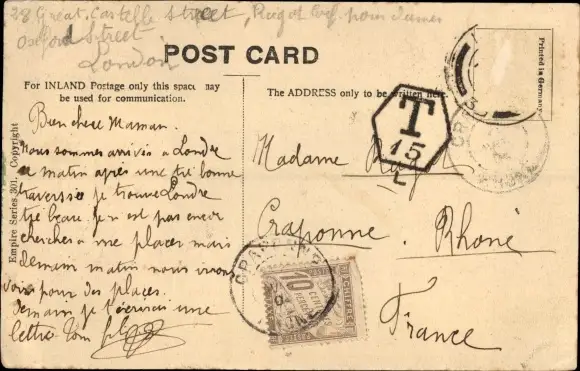 28 Great Castelle Street,
Oxford Street
London
POST CARD
Printed in Germany
For INLAND Postage only this space may
be used for communication.
The ADDRESS only to be written here.
T
15
L
Empire Series 301. Copyright
Bien chere Maman.
nous sommes arrivés a Londre
ce matin après une trè bonne
traversée je trouve Londre
trè beau. je n est pas encor
cherchér a me placer mais
demain matin nous irons
voir pour des places.
demain je t'écrirai une
lettre ton fils
Madame
Craponne. Rhone
France
CRAPONNE
RHONE
10
CENTIMES
A PERCEVOIR